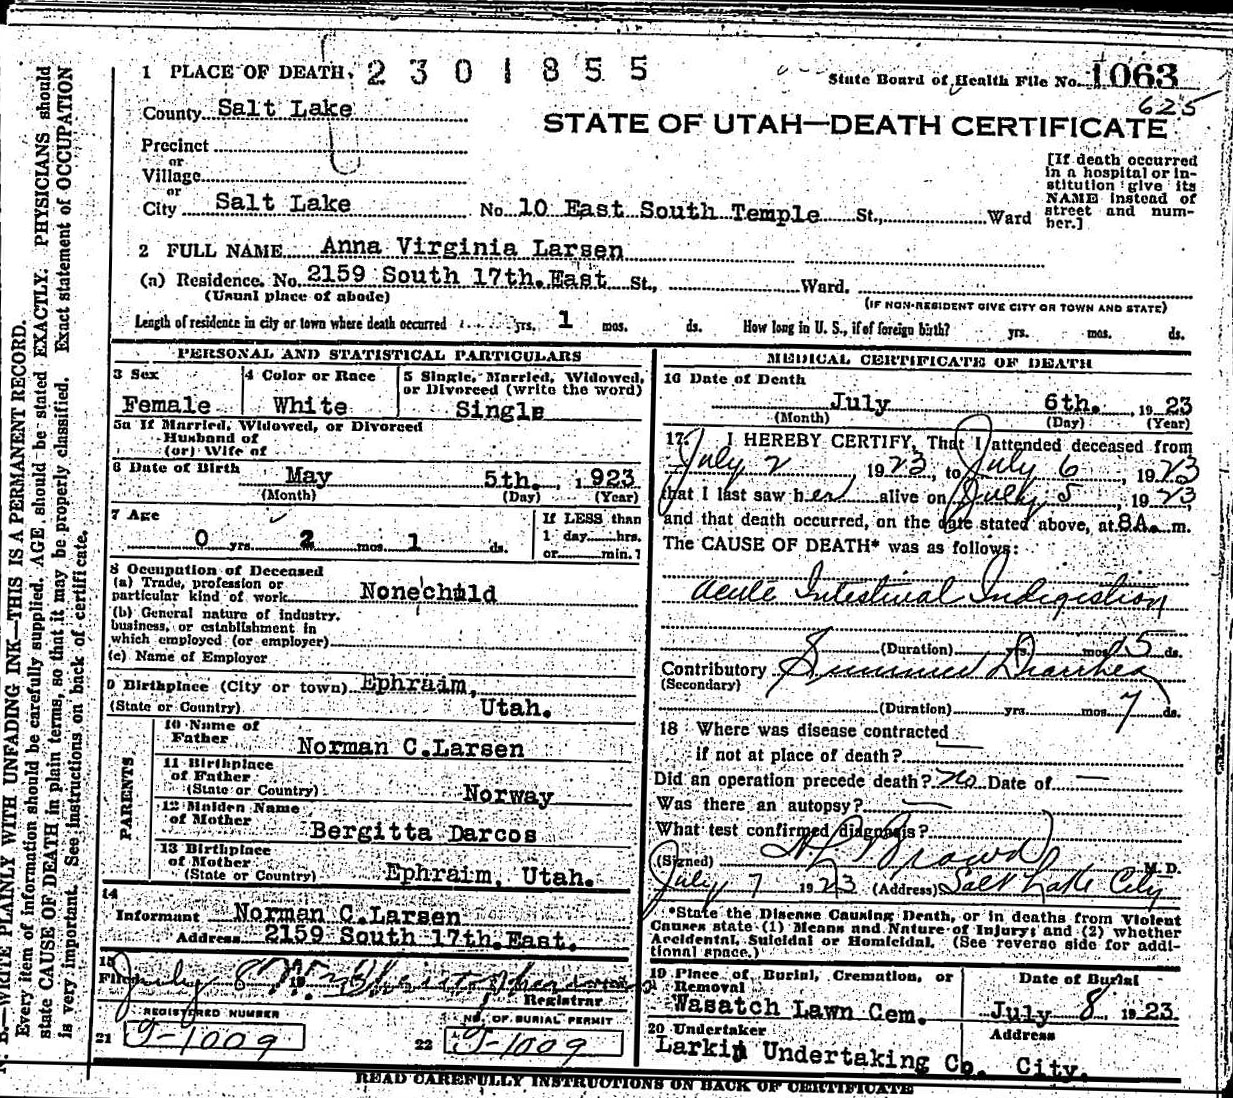 1 PLACE OF DEATH. 2 3 0 1 8 5 5
State Board of Health File No. 1063
625
County Salt Lake
STATE OF UTAH—DEATH CERTIFICATE
Precinct
or
Village
or
City Salt Lake No 10 East South Temple St., Ward
[If death occurred
in a hospital or in-
stitution give its
NAME instead of
street and num-
ber.]
2 FULL NAME Anna Virginia Larsen
(a) Residence. No. 2159 South 17th. East St., Ward.
(Usual place of abode) (IF NON-RESIDENT GIVE CITY OR TOWN AND STATE)
Length of residence in city or town where death occurred yrs. 1 mos. ds. How long in U. S., if of foreign birth? yrs. mos. ds.
PERSONAL AND STATISTICAL PARTICULARS
3 Sex
Female
4 Color or Race
White
5 Single, Married, Widowed,
or Divorced (write the word)
Single
5a If Married, Widowed, or Divorced
Husband of
(or) Wife of
6 Date of Birth May 5th., 1923
(Month) (Day) (Year)
7 Age
0 yrs. 2 mos. 1 ds.
If LESS than
1 day hrs.
or min.?
8 Occupation of Deceased
(a) Trade, profession or
particular kind of work None child
(b) General nature of industry,
business, or establishment in
which employed (or employer)
(c) Name of Employer
9 Birthplace (City or town) Ephraim,
(State or Country) Utah.
PARENTS
10 Name of
Father Norman C.Larsen
11 Birthplace
of Father
(State or Country) Norway
12 Maiden Name
of Mother Bergitta Darcos
13 Birthplace
of Mother
(State or Country) Ephraim, Utah.
14
Informant Norman C.Larsen
Address 2159 South 17th.East.
15
Filed July 8 19
Registrar
REGISTERED NUMBER NO. OF BURIAL PERMIT
21 J-1009 22 J-1009
MEDICAL CERTIFICATE OF DEATH
16 Date of Death
July 6th., 1923
(Month) (Day) (Year)
17. I HEREBY CERTIFY, That I attended deceased from
July 2, 1923, to July 6, 1923
that I last saw her alive on July 5, 1923
and that death occurred, on the date stated above, at 8A. m.
The CAUSE OF DEATH* was as follows:
Acute Intestinal Indigestion
(Duration) yrs. mos. 5 ds.
Contributory Summer Diarrhea
(Secondary)
(Duration) yrs. mos. 7 ds.
18 Where was disease contracted
if not at place of death?
Did an operation precede death? No Date of —
Was there an autopsy? —
What test confirmed diagnosis?
(Signed) Brown M. D.
July 7 1923 (Address) Salt Lake City
*State the Disease Causing Death, or in deaths from Violent
Causes state (1) Means and Nature of Injury; and (2) whether
Accidental, Suicidal or Homicidal. (See reverse side for addi-
tional space.)
19 Place of Burial, Cremation, or
Removal
Wasatch Lawn Cem.
Date of Burial
July 8, 1923.
20 Undertaker Address
Larkin Undertaking Co. City.
READ CAREFULLY INSTRUCTIONS ON BACK OF CERTIFICATE
N. B.—WRITE PLAINLY WITH UNFADING INK—THIS IS A PERMANENT RECORD.
Every item of information should be carefully supplied. AGE should be stated EXACTLY. PHYSICIANS should
state CAUSE OF DEATH in plain terms, so that it may be properly classified. Exact statement of OCCUPATION
is very important. See instructions on back of certificate.